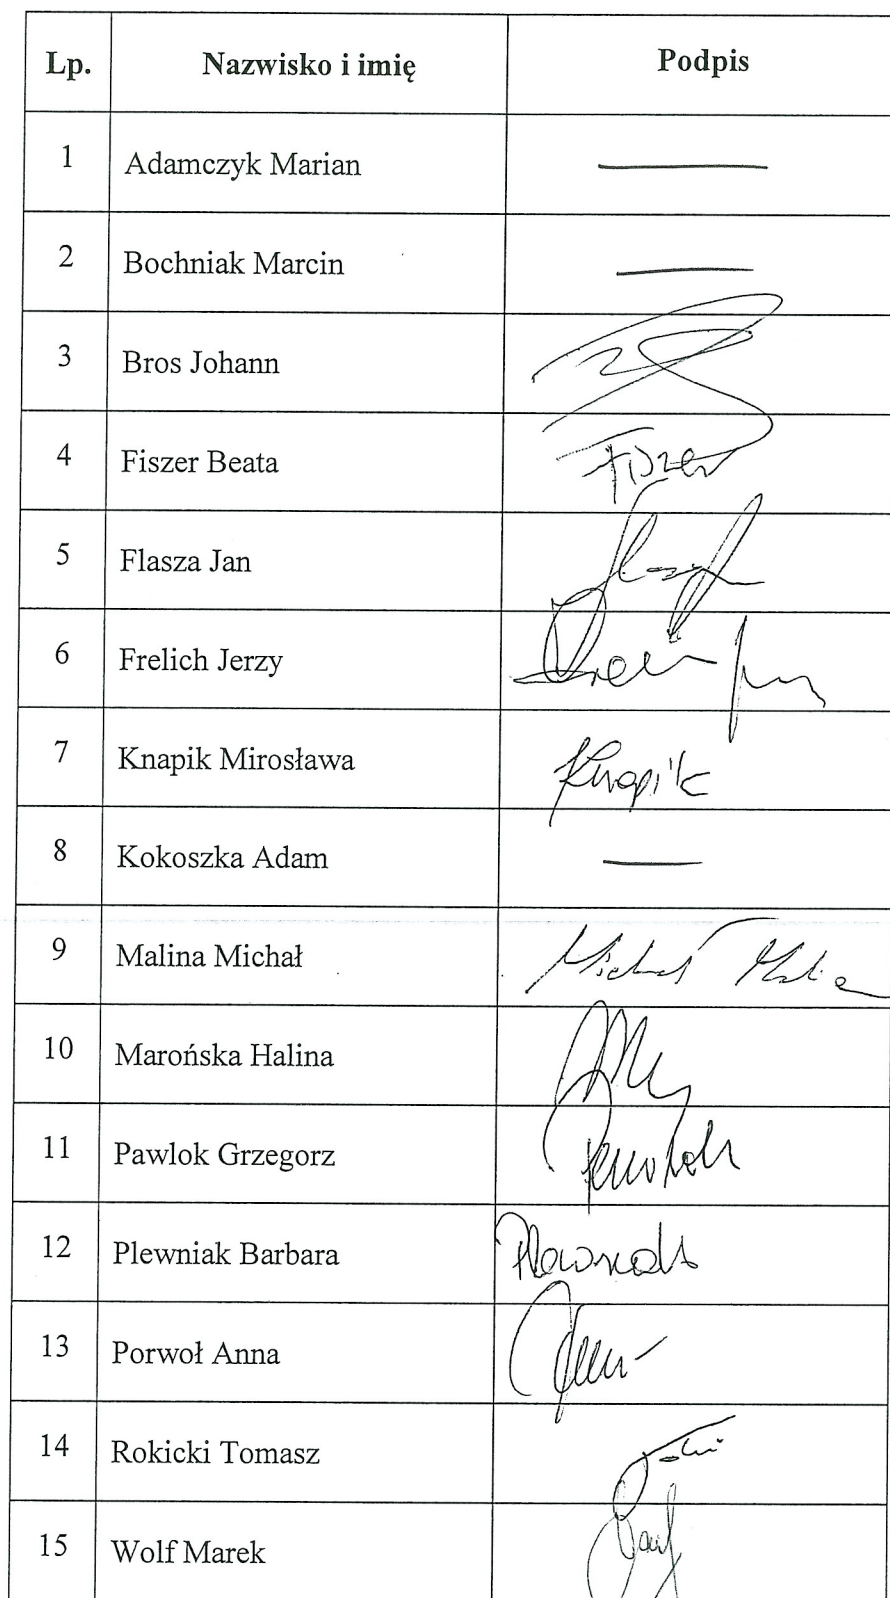 Lp. Nazwisko i imię Podpis
1 Adamczyk Marian
2 Bochniak Marcin
3 Bros Johann
4 Fiszer Beata Fiszer
5 Flasza Jan
6 Frelich Jerzy
7 Knapik Mirosława Knapik
8 Kokoszka Adam
9 Malina Michał Michał Malina
10 Marońska Halina
11 Pawlok Grzegorz
12 Plewniak Barbara
13 Porwoł Anna
14 Rokicki Tomasz
15 Wolf Marek